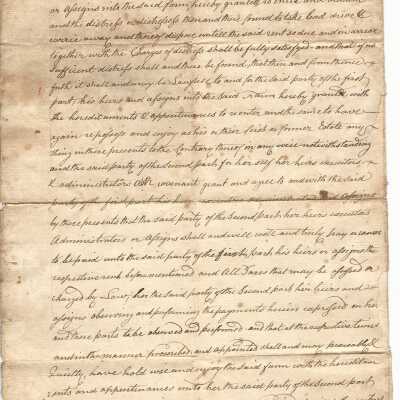 or assigns into the said farm hereby granted to enter and
and the distress or distresses then and there found to take lead drive &
carrie away and thereof dispose untill the said rent so due and in arrear
together with the Charges of distress shall be fully satisfied and that if no
sufficient distress shall and there be found that then and from thence
forth it shall and may be Lawful to and for the said party of the first
part his heirs and assigns into the said Farm hereby granted with
the hereditaments & appurtenances to reenter and the same to have
again repossess and enjoy as his or their first or former Estate any
thing in these presents to the Contrary thereof in any wise notwithstanding
and the said party of the Second part for her self her heirs executors
& administrators covenant grant and agree to and with the said
party of the first part his heirs executors and assigns
by these presents that the said party of the Second part her heirs executors
Administrators or Assigns shall and will well and truly pay or cause
to be paid unto the said party of the first part his heirs or assigns the
respective rent before mentioned and All Taxes that may be assessed or
charged by Law, her the said party of the Second part her heirs and
assigns observing and performing the payments herein expressed on her
and their parts to be observed and performed and that at the respective times
and in the manner prescribed and appointed shall and may peaceably &
Quietly have hold use and enjoy the said farm with the heredita
ments and appurtenances unto her the said party of the Second part